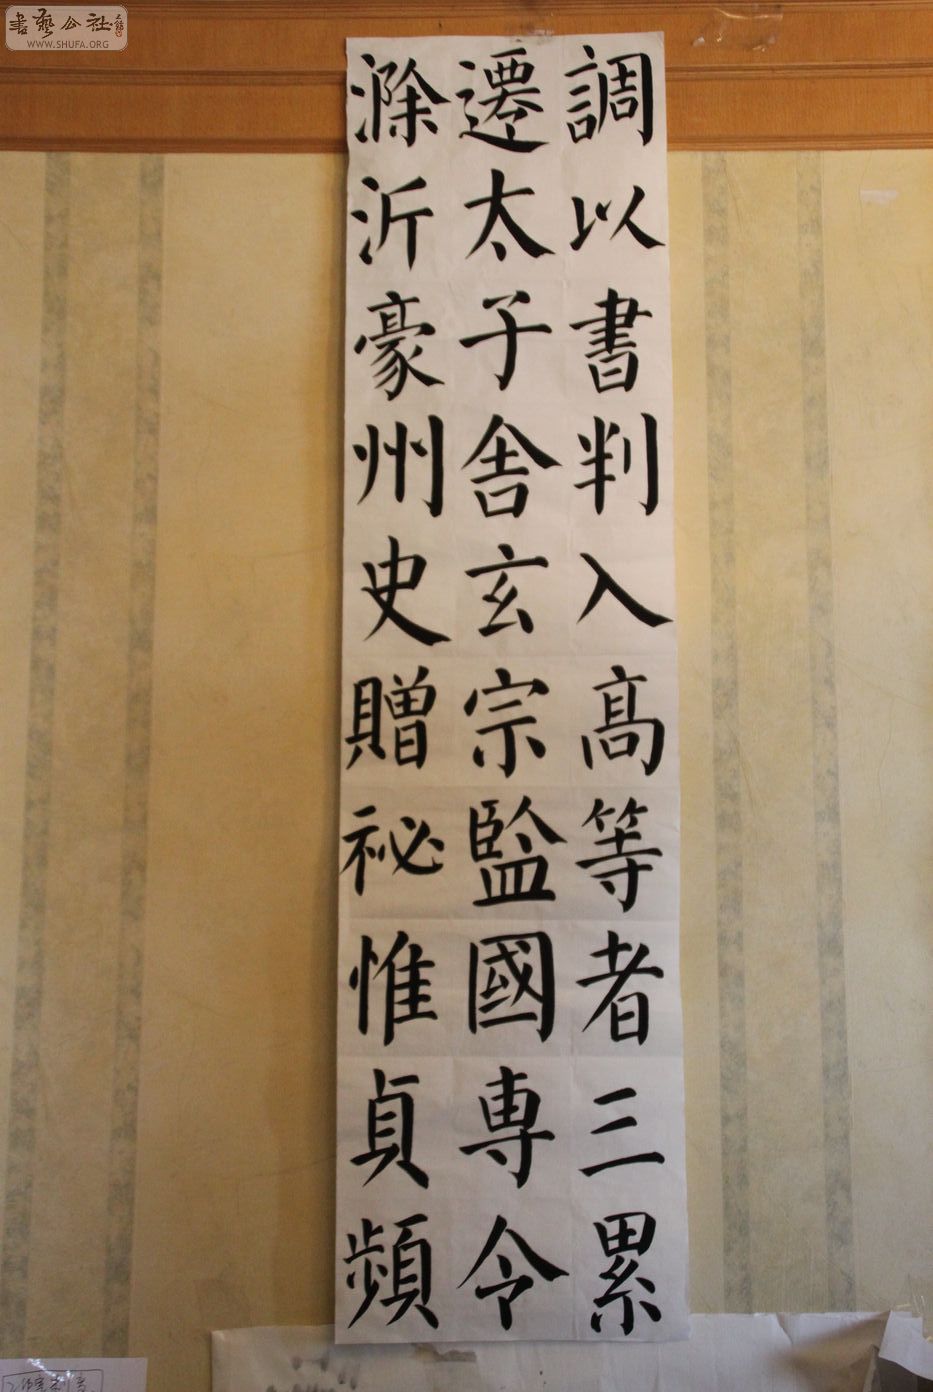 調以書判入高等者三累
遷太子舎玄宗監國専令
滁沂豪州史贈祕惟貞頻
書藝公社
WWW.SHUFA.ORG